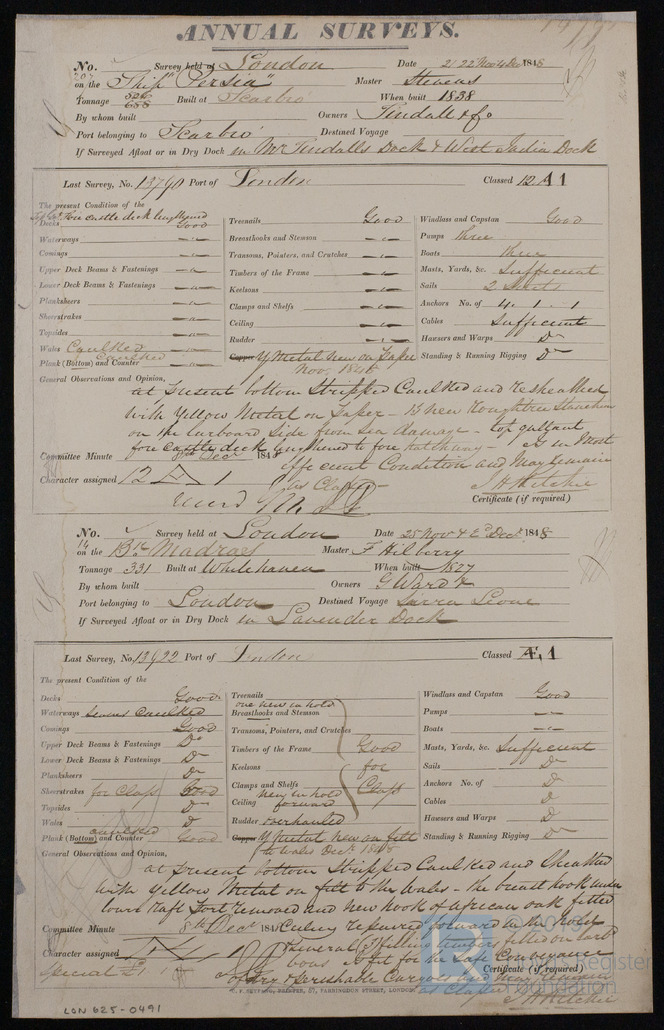 ANNUAL SURVEYS.
No. 207 Survey held at London Date 21 22 Nov 4 Dec 1848
on the Ship "Persia" Master Stevens
Tonnage 526 658 Built at Scarbro' When built 1838
By whom built Owners Tindall & Co
Port belonging to Scarbro' Destined Voyage
If Surveyed Afloat or in Dry Dock in Mr Tindalls Dock & West India Dock
Last Survey, No. 13790 Port of London Classed 12 A 1
The present Condition of the
Top Gt Fore castle deck lengthened
Decks Good
Waterways
Comings
Upper Deck Beams & Fastenings
Lower Deck Beams & Fastenings
Planksheers
Sheerstrakes
Topsides
Wales Caulked
Plank (Bottom) and Counter Caulked
Treenails Good
Breasthooks and Stemson
Transoms, Pointers, and Crutches
Timbers of the Frame
Keelsons
Clamps and Shelfs
Ceiling
Rudder
Copper Y Metal new on Paper
Nov. 1848
Windlass and Capstan Good
Pumps three
Boats three
Masts, Yards, &c. Sufficient
Sails 2 Suits
Anchors No. of 4. 1. 1
Cables Sufficient
Hawsers and Warps Do
Standing & Running Rigging Do
General Observations and Opinion,
at present bottom Stripped Caulked and resheathed
with Yellow Metal on Paper - 13 new Roughtree Stanchions
on the larboard Side from Sea damage - top gallant
fore castle deck lengthened to fore hatchway - is in Most
efficient Condition and May remain
as Classed
Committee Minute Decr 1848
Character assigned 12 A 1
J H Ritchie
Certificate (if required)
No. 14 Survey held at London Date 25 Nov & 2d Decr 1848
on the Bk Madras Master F Hilberry
Tonnage 331 Built at Whitehaven When built 1827
By whom built Owners G Ward &
Port belonging to London Destined Voyage Sierra Leone
If Surveyed Afloat or in Dry Dock in Lavender Dock
Last Survey, No. 13922 Port of London Classed Æ, 1
The present Condition of the
Decks Good
Waterways Seams Caulked
Comings Good
Upper Deck Beams & Fastenings Do
Lower Deck Beams & Fastenings Do
Planksheers Do
Sheerstrakes for Class Good
Topsides Do
Wales Do
Plank (Bottom) and Counter caulked Good
Treenails
one new in hold
Breasthooks and Stemson
Transoms, Pointers, and Crutches
Timbers of the Frame Good
Keelsons for
Clamps and Shelfs Class
new in hold
Ceiling forward
Rudder overhauled
Copper Y Metal new on felt
to Wales Decr 1848
Windlass and Capstan Good
Pumps
Boats
Masts, Yards, &c. Sufficient
Sails Do
Anchors No. of Do
Cables Do
Hawsers and Warps Do
Standing & Running Rigging Do
General Observations and Opinion,
at present bottom Stripped Caulked and Sheathed
with Yellow Metal on felt to the Wales - the breast hook under
lower raft Port removed and new hook of African oak fitted
Committee Minute 8th Decr 1848 Ceiling repaired forward in the hold
Several filling timbers fitted on larbd
bow is fit for the Safe Conveyance
of Dry & perishable Cargoes and May remain
as Classed
Character assigned Æ 1
Special £1
Certificate (if required)
J H Ritchie
C. F. SEYFANG, PRINTER, 57, FARRINGDON STREET, LONDON
LON 625-0491
Lloyd's Register
Foundation